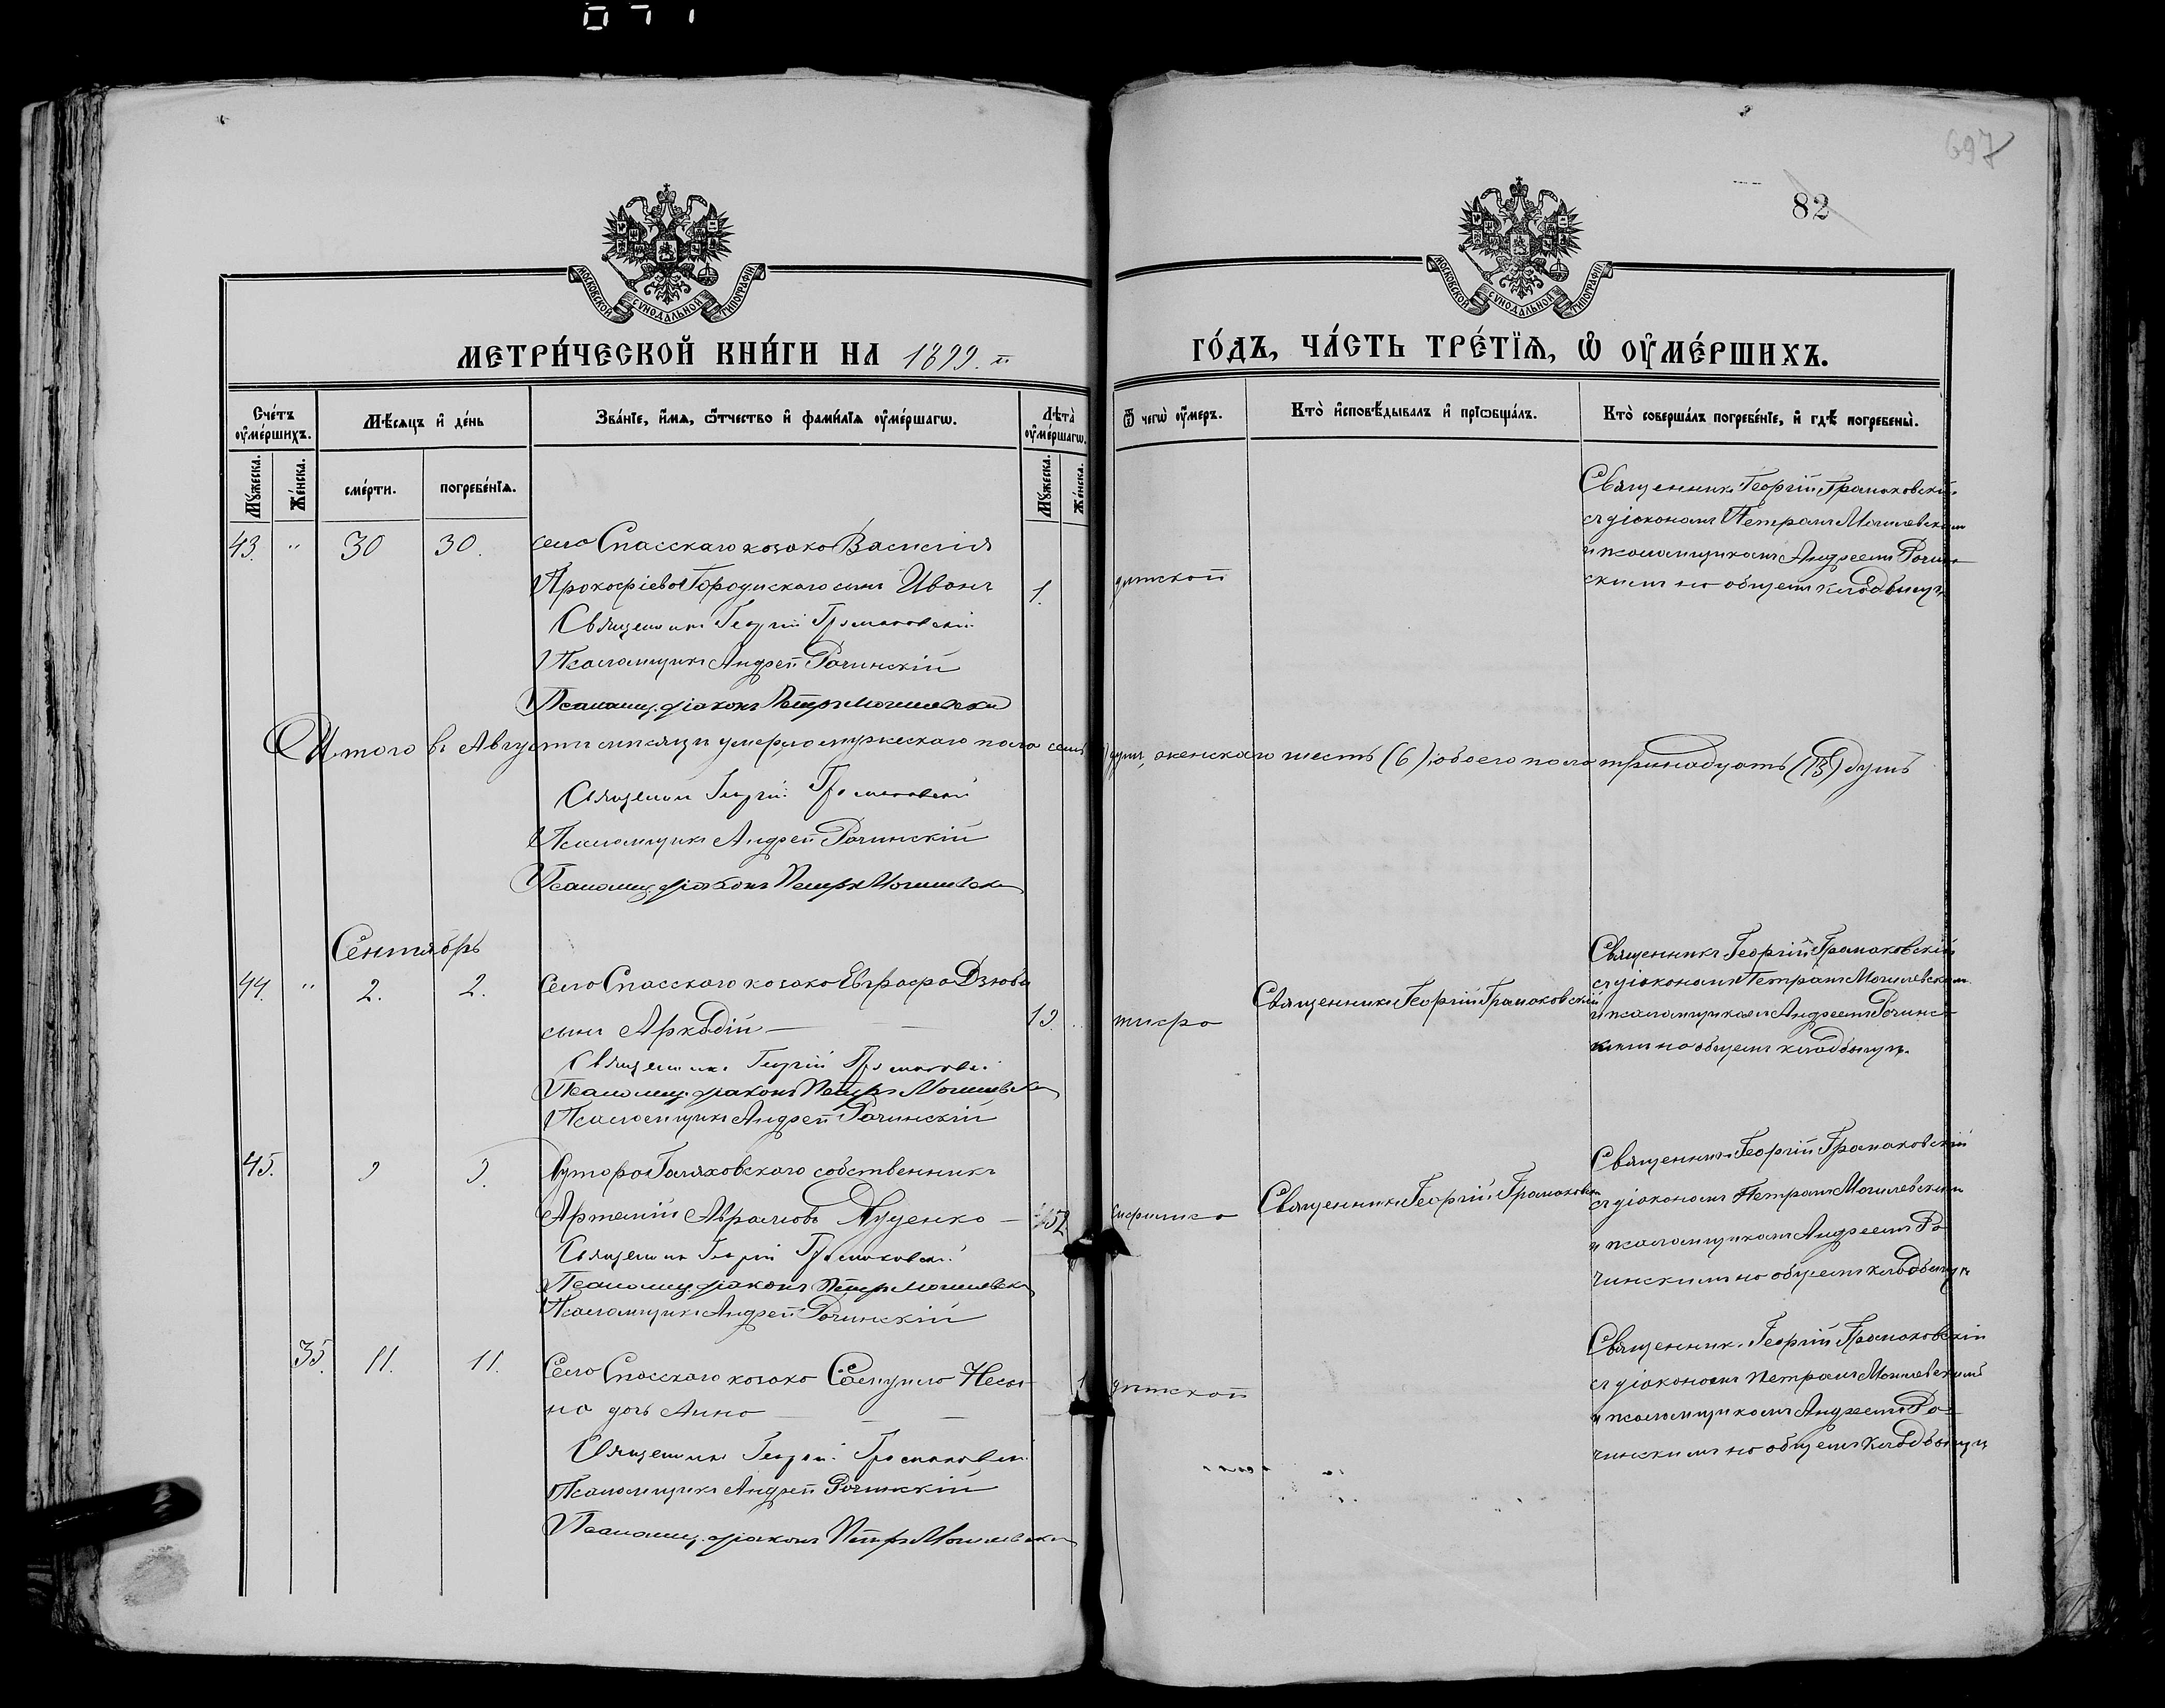 071
697
82
МОСКОВСКОЙ СѴНОДАЛЬНОЙ ТИПОГРАФІИ
МОСКОВСКОЙ СѴНОДАЛЬНОЙ ТИПОГРАФІИ
МЕТРИ́ЧЕСКОЙ КНИ́ГИ НА 1899.
ГО́ДЪ, ЧА́СТЬ ТРЕ́ТІѦ, Ѡ ОУМЕ́РШИХЪ.
Сче́тъ оуме́ршихъ.
Мѣсяцъ и де́нь
Зва́нїе, и́мя, ѿтчество и фами́лїя оуме́ршагѡ.
Лѣта̀ оуме́ршагѡ.
Ѿ чегѡ̀ оу́меръ.
Кто̀ исповѣ́дывалъ и прїѡбща́лъ.
Кто̀ соверша́лъ погребе́нїе, и гдѣ̀ погребены̀.
Мꙋ́жеска. Же́нска. сме́рти. погребе́нїя. Мꙋ́жеска. Же́нска.
43. " 30 30. села Спасскаго козака Василія
Прокофіева Городискаго сынъ Иванъ 1. дѣтской
Священникъ Георгій Грамаковскій
Псаломщикъ Андрей Рачинскій
Псаломщ. діаконъ Петръ Могилевскій
Священникъ Георгій Грамаковскій
съ діакономъ Петромъ Могилевскимъ
и псаломщикомъ Андреемъ Рачин-
скимъ на общемъ кладбищѣ
Итого въ Августѣ мѣсяцѣ умерло мужескаго пола семь душъ, женскаго шесть (6), обоего пола тринадцать (13) душъ
Священникъ Георгій Грамаковскій
Псаломщикъ Андрей Рачинскій
Псаломщ. діаконъ Петръ Могилевскій
Сентябрь
44. " 2. 2. Села Спасскаго козака Евграфа Дзюбы
сынъ Аркадій 19. тифа
Священникъ Георгій Грамаковскій
Псаломщ. діаконъ Петръ Могилевскій
Псаломщикъ Андрей Рачинскій
Священникъ Георгій Грамаковскій
Священникъ Георгій Грамаковскій
съ діакономъ Петромъ Могилевскимъ
и псаломщикомъ Андреемъ Рачинс-
кимъ на общемъ кладбищѣ.
45. 9 9. Хутора Галяховскаго собственникъ
Артемій Аврамовъ Луценко 52.
Священникъ Георгій Грамаковскій
Псаломщ. діаконъ Петръ Могилевскій
Псаломщикъ Андрей Рачинскій
Священникъ Георгій Грамаковскій
Священникъ Георгій Грамаковскій
съ діакономъ Петромъ Могилевскимъ
и псаломщикомъ Андреемъ Ра-
чинскимъ на общемъ кладбищѣ
35. 11. 11. Села Спасскаго козака Самуила
дочь Анна 1 дѣтской
Священникъ Георгій Грамаковскій
Псаломщикъ Андрей Рачинскій
Псаломщ. діаконъ Петръ Могилевскій
Священникъ Георгій Грамаковскій
съ діакономъ Петромъ Могилевскимъ
и псаломщикомъ Андреемъ Ра-
чинскимъ на общемъ кладбищѣ